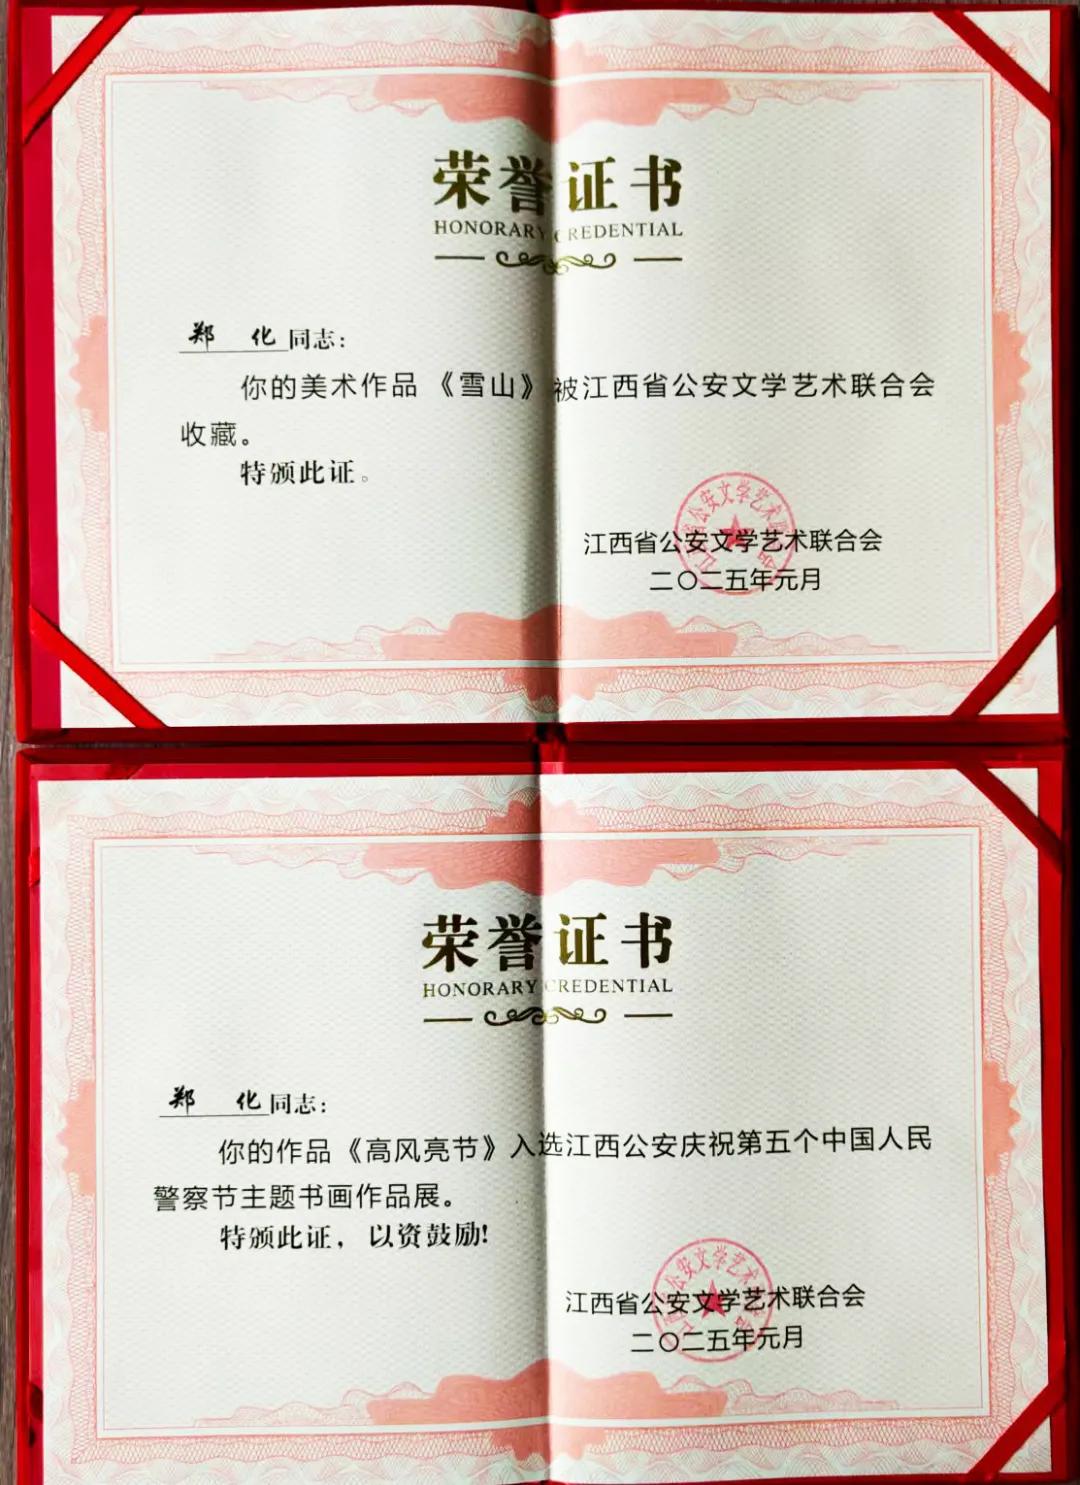 荣誉证书
HONORARY CREDENTIAL
郑 化同志：
你的美术作品《雪山》被江西省公安文学艺术联合会
收藏。
特颁此证。
江西省公安文学艺术联合会
二〇二五年元月
荣誉证书
HONORARY CREDENTIAL
郑 化同志：
你的作品《高风亮节》入选江西公安庆祝第五个中国人民
警察节主题书画作品展。
特颁此证，以资鼓励!
江西省公安文学艺术联合会
二〇二五年元月